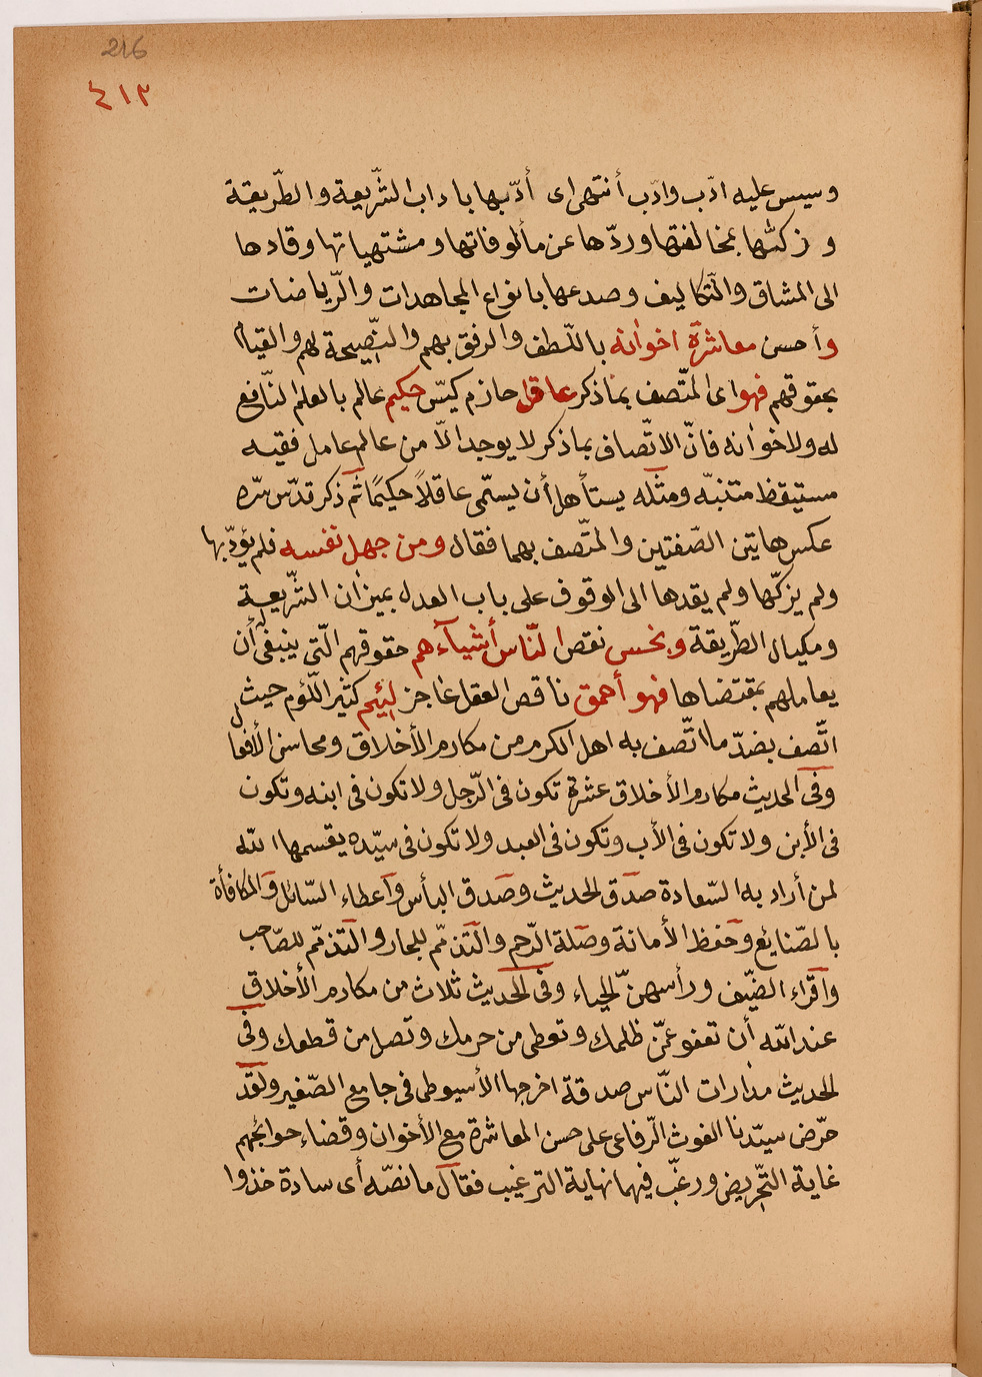 216
٤١٢
وسيس عليه ادّب وادّب أنتهى اى أدّبها باداب الشّريعة والطّريقة
وزكّٰها بمخالفتها وردّها عن مألوفاتها ومشتهياتها وقادها
الى المشاق والتّكاليف وصدعها بانواع المجاهدات والرّياضات
وأحسن معاشرة اخوانه باللّطف والرفق بهم والنّصيحة لهم والقيام
بحقوقهم فهو اى المتّصف بما ذكر عاقل حازم كيّس حكيم عالم بالعلم النّافع
له ولاخوانه فانّ الاتّصاف بما ذكر لا يوجد الّا من عالم عامل فقيه
مستيقظ متنبّه ومثله يستأهل أن يسمّى عاقلاً حكيمًا ثم ذكر قدّس سرّه
عكس هايتن الصّفتين والمتّصف بهما فقال ومن جهل نفسه فلم يؤدّبها
ولم يزكّها ولم يقدها الى الوقوف على باب العدل بميزان الشّريعة
ومكيال الطّريقة وبخس نقص النّاس أشيآءهم حقوقهم الّتى ينبغى له أن
يعاملهم بمقتضاها فهو أحمق ناقص العقل عاجز لئيم كثير اللّؤم حيث
اتّصف بضدّ ما اتّصف به اهل الكرم من مكارم الأخلاق ومحاسن الأفعال
وفى الحديث مكارم الأخلاق عشرة تكون فى الرّجل ولا تكون فى ابنه وتكون
فى الأبن ولا تكون فى الأب وتكون فى العبد ولا تكون فى سيّده يقسمها الله
لمن أراد به السّعادة صدق الحديث وصدق البأس وأعطاء السّائل والمكافأة
بالصّنايع وحفظ الأمانة وصلة الرّحم والتّذمّم للجار والتّذمّم للصّاحب
واقراء الضّيف ورأسهنّ الحياء وفى الحديث ثلاث من مكارم الأخلاق
عند الله أن تعفو عمّن ظلمك وتعطى من حرمك وتصل من قطعك وفى
الحديث مدارات النّاس صدقة اخرجها الأسيوطى فى جامع الصّغير ولقد
حرّض سيّدنا الغوث الرّفاعى على حسن المعاشرة مع الأخوان وقضاء حوايجهم
غاية التّحريض ورغّب فيهما نهاية الترغيب فقال ما نصّه أى سادة خذوا